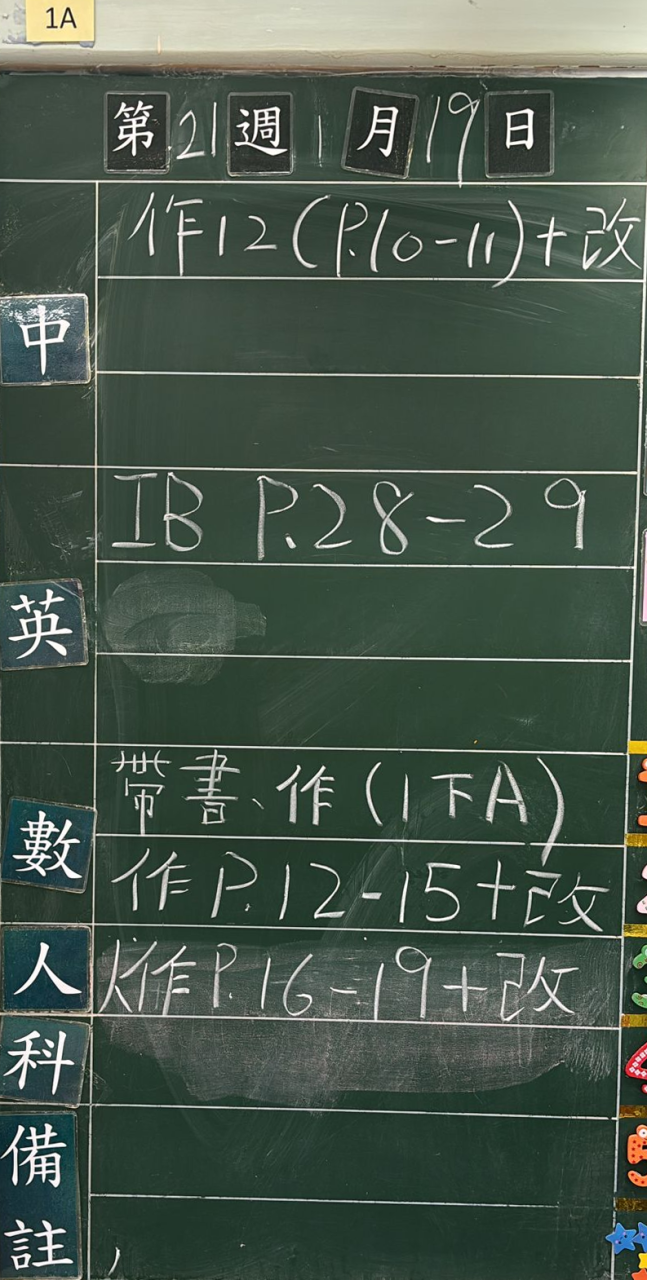 1A
第21週1月19日
作12(P.10-11)+改
中
IB P.28-29
英
帶書、作(1下A)
數
作P.12-15+改
人 作P.16-19+改
科
備
註